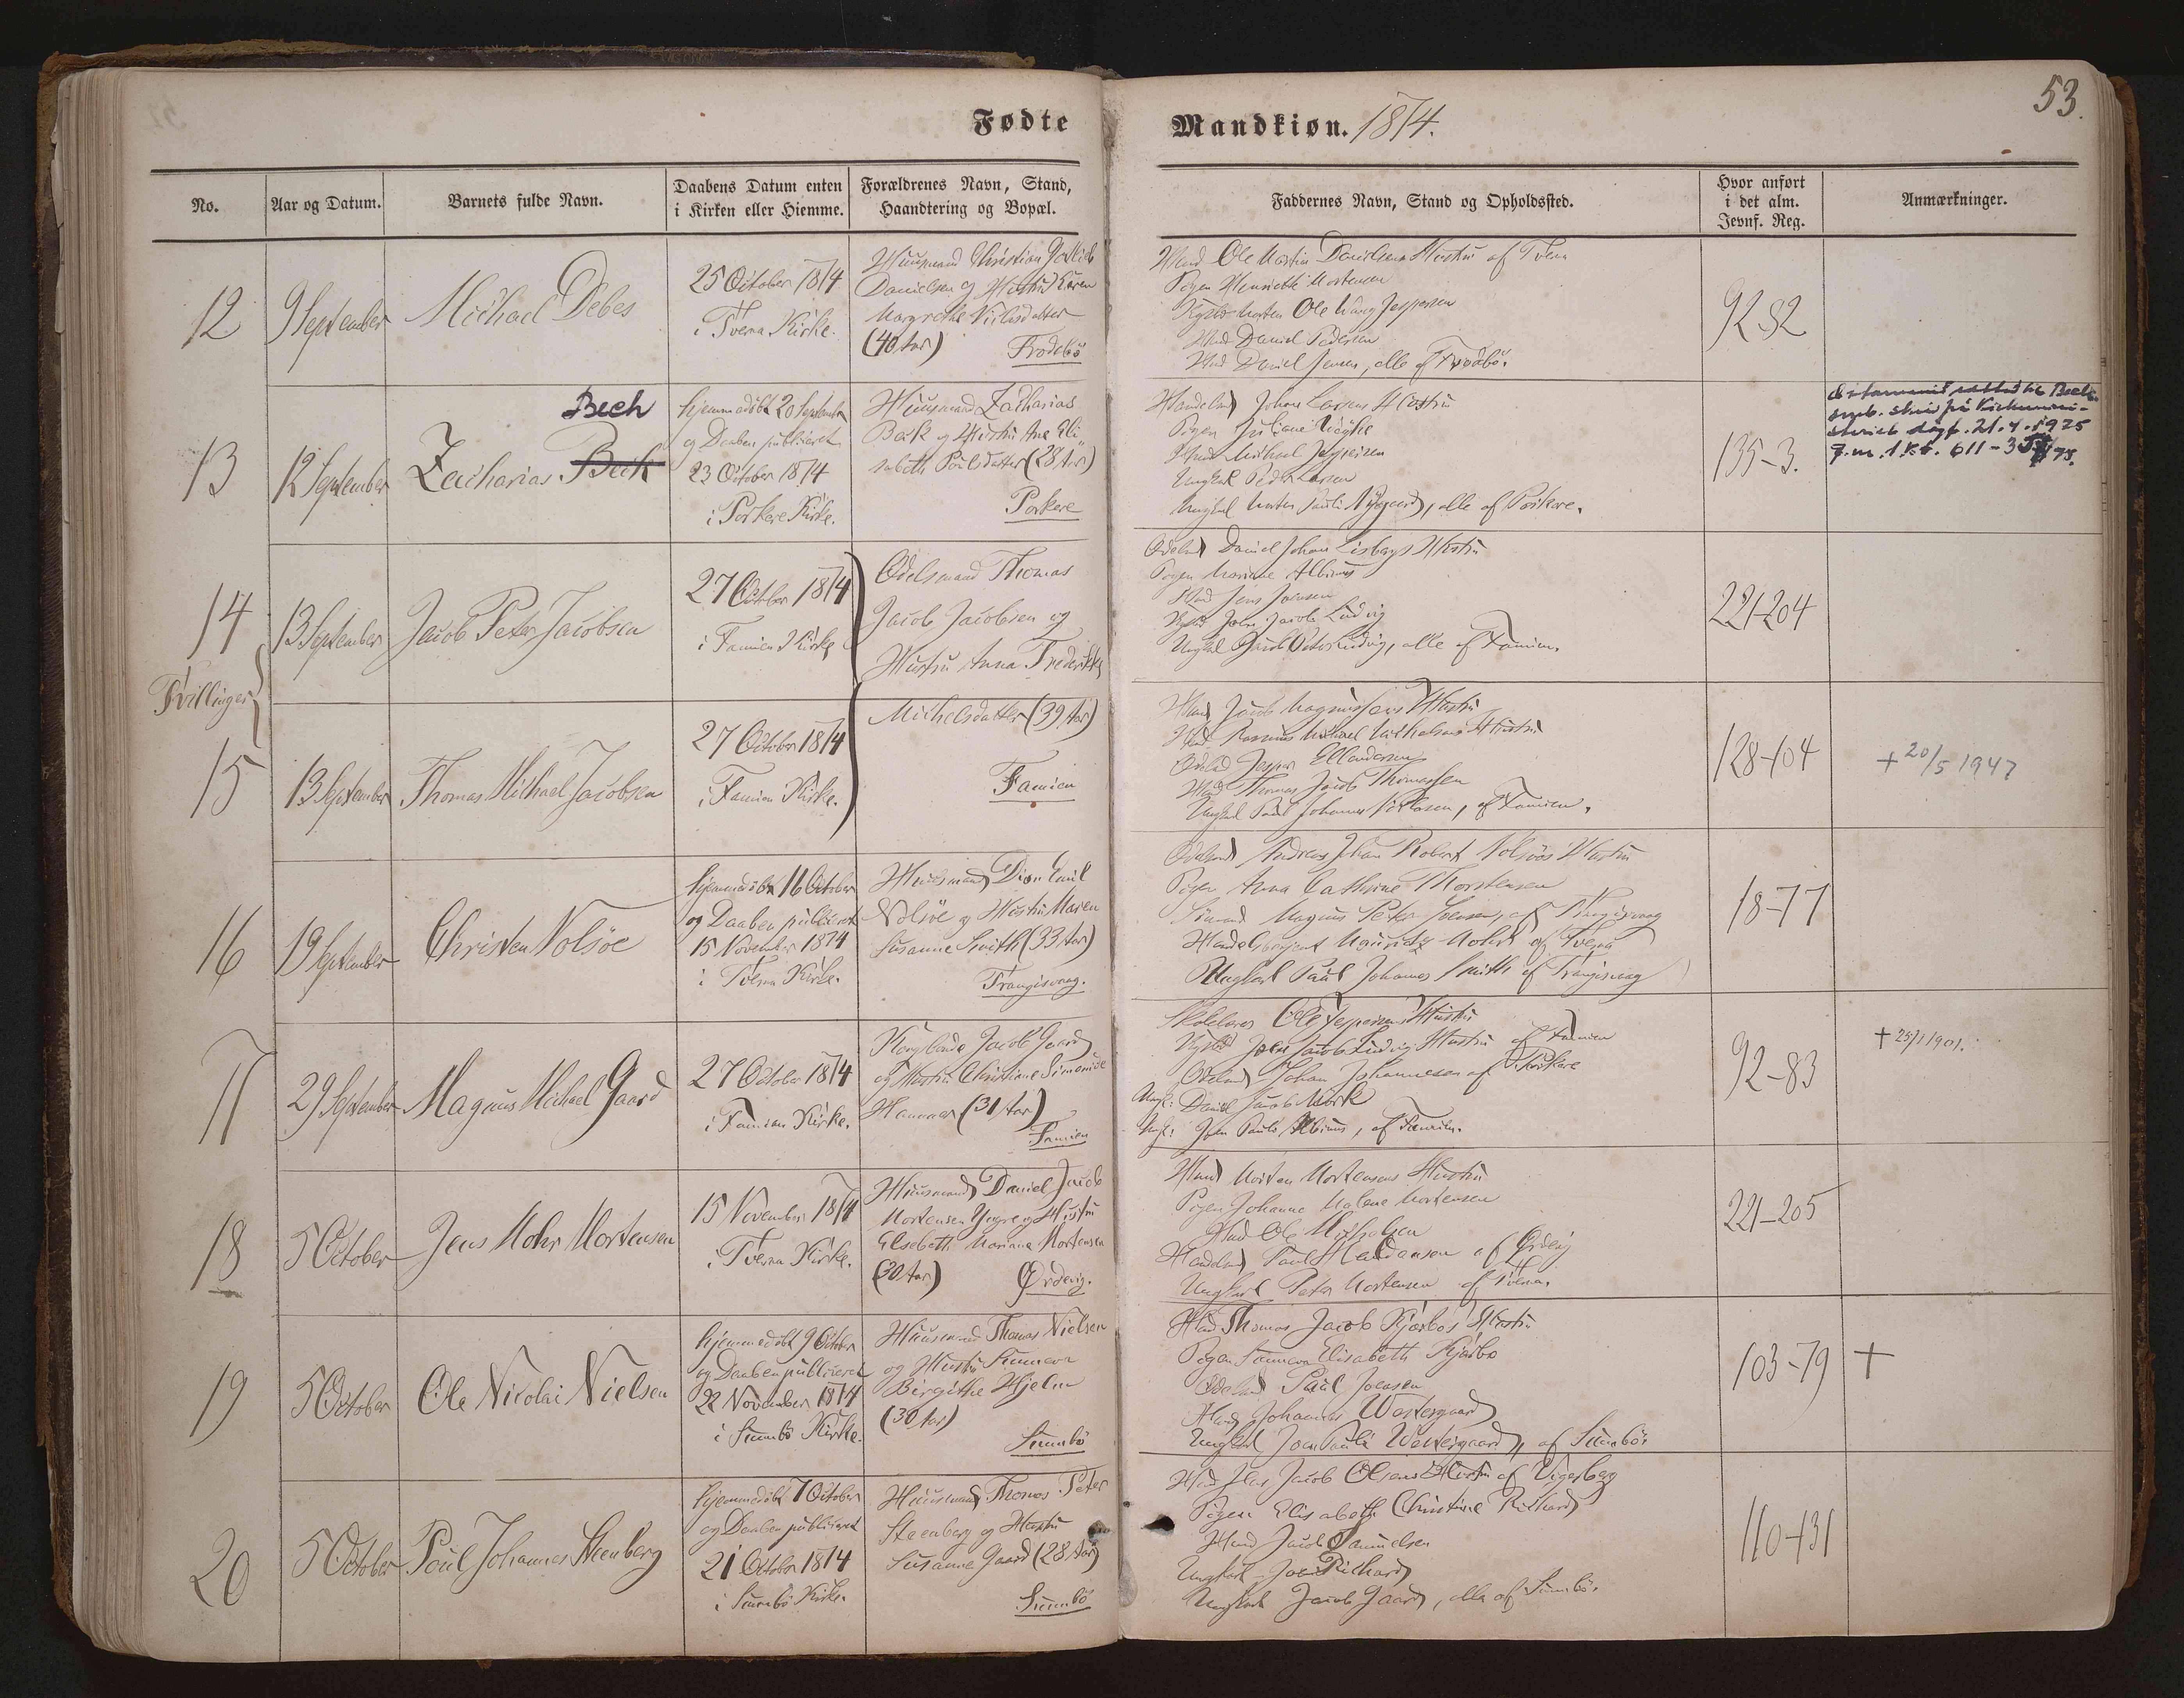 53.
Fødte
Mandkiøn. 1874.
No.
Aar og Datum.
Barnets fulde Navn.
Daabens Datum enten
i Kirken eller Hiemme.
Forældrenes Navn, Stand,
Haandtering og Bopæl.
Faddernes Navn, Stand og Opholdssted.
Hvor anført
i det alm.
Jevnf. Reg.
Anmærkninger.
12
9 September
Michael Debes
25 October 1874
i Tvera Kirke.
Huusmand Christian
Danielsen og Hustru Karen
Margrethe
(40 Aar)
Frodebö
Ole Martin Danielsens Hustru af Tvera
Pigen Henriette Mortensen
Morten Ole Jespersen
Daniel Pedersen
Daniel Jensen, alle af Frodebö.
92-82
13
12 September
Bech
Zacharias Beck
hjemmedöbt 20 September
og Daaben publiceret
23 October 1874
i Porkere Kirke.
Huusmand Zacharias
Beck og Hustru Ane Eli-
sabeth Poulsdatter (28 Aar)
Porkere
Johan Larsens Hustru
Pigen Juliane
Michael Jespersen
Ungkarl Peder Larsen
Ungkarl Morten Pauli Nygaard, alle af Porkere.
135-3.
Bech
21.4.1925
J.m. 1 Kt. 611-3
14
13 September
Jacob Peter Jacobsen
27 October 1874
i Famien Kirke
Odelsmand Thomas
Jacob Jacobsen og
Hustru Anna Frederikke
Daniel Johan Lisbergs Hustru
Pigen Mariane Albinus
Jens Joensen
Joen Jacob Ludvig
Ungkarl Jacob Peter Ludvig, alle af Famien.
221-204
Tvillinger
15
13 September
Thomas Michael Jacobsen
27 October 1874
i Famien Kirke.
Michelsdatter (39 Aar)
Famien
Jacob Magnussens Hustru
Rasmus Michael Hustru
Jesper Ellendersen
Thomas Jacob Thomassen
Ungkarl Poul Johannes, af Famien.
128-104
+ 20/5 1947
16
19 September
Christen Nolsöe
hjemmedöbt 16 October
og Daaben publiceret
15 November 1874
i Tvera Kirke.
Huusmand Dion Emil
Nolsöe og Hustru Maren
Susanne Smith (33 Aar)
Trangisvaag.
Andreas Johan Robert Nolsöes Hustru
Pigen Anna Cathrine Thorstensen
Magnus Peter Joensen, af Trangisvaag
Mauritz Mohr af Tvera
Ungkarl Paul Johannes Smith af Trangisvaag
18-77
17
29 September
Magnus Michael Gaard
27 October 1874
i Famien Kirke.
Kongsbonde Jacob Gaard
og Hustru Christiane Simonine
Hammer (31 Aar)
Famien
Skolelærer Ole Jespersens Hustru
Joen Jacob Ludvigs Hustru af Famien
Johan Johannesen af Porkere
Ungk: Daniel Jacob Mørk
Ungk: Joen Pauli Albinus, af Famien.
92-83
+ 25/1 1901.
18
5 October
Jens Mohr Mortensen
15 November 1874
i Tvera Kirke.
Huusmand Daniel Jacob
Mortensen Yngre og Hustru
Elsebeth Mariane Mortensen
(30 Aar)
Ørdevig.
Morten Mortensens Hustru
Pigen Johanne Malene Mortensen
Ole
Paul af Ørdevig
Ungkarl Peter Mortensen af Tvera.
221-205
19
5 October
Ole Nicolai Nielsen
hjemmedöbt 9 October
og Daaben publiceret
22 November 1874
i Sumbö Kirke.
Huusmand Thomas Nielsen
og Hustru Sunneva
Birgithe Hjelm
(30 Aar)
Sumbö
Thomas Jacob Kjærbos Hustru
Pigen Sunneva Elisabeth Kjærbo
Paul Joensen
Johannes Westergaard
Ungkarl Joen Pauli Westergaard, af Sumbö.
103-79
+
20
5 October
Poul Johannes Steenberg
hjemmedöbt 7 October
og Daaben publiceret
21 October 1874
i Sumbö Kirke.
Huusmand Thomas Peter
Steenberg og Hustru
Susanne Gaard (28 Aar)
Sumbö
Jacob Olsens Hustru af Vigerberg
Pigen Elisabeth Christine Richard
Jacob Samuelsen
Ungkarl Joen Richard
Ungkarl Jacob Gaard, alle af Sumbö.
110-131